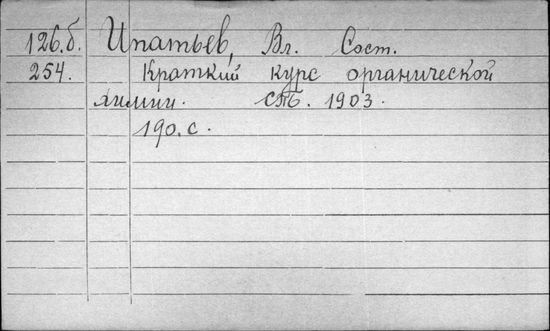 126.б. Ипатьев, Вл. Сост.
254. Краткий курс органической
химии. СПб. 1903.
190. с.